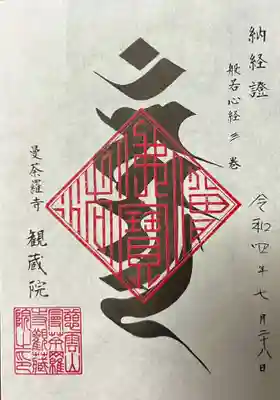 納経證
般若心経 三 巻
令和四年七月二十八日
佛法僧寶
曼荼羅寺
観蔵院
慈雲山
曼荼羅
寺觀藏
院之印